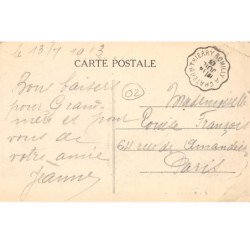 le 13/7 1913
CARTE POSTALE
CHATEAU-THIERRY
Bons baisers
pour Grand
mère et pour
vous de
votre amie
Jeanne
02
Mademoiselle
Louisa François
64 rue des Amandiers
Paris